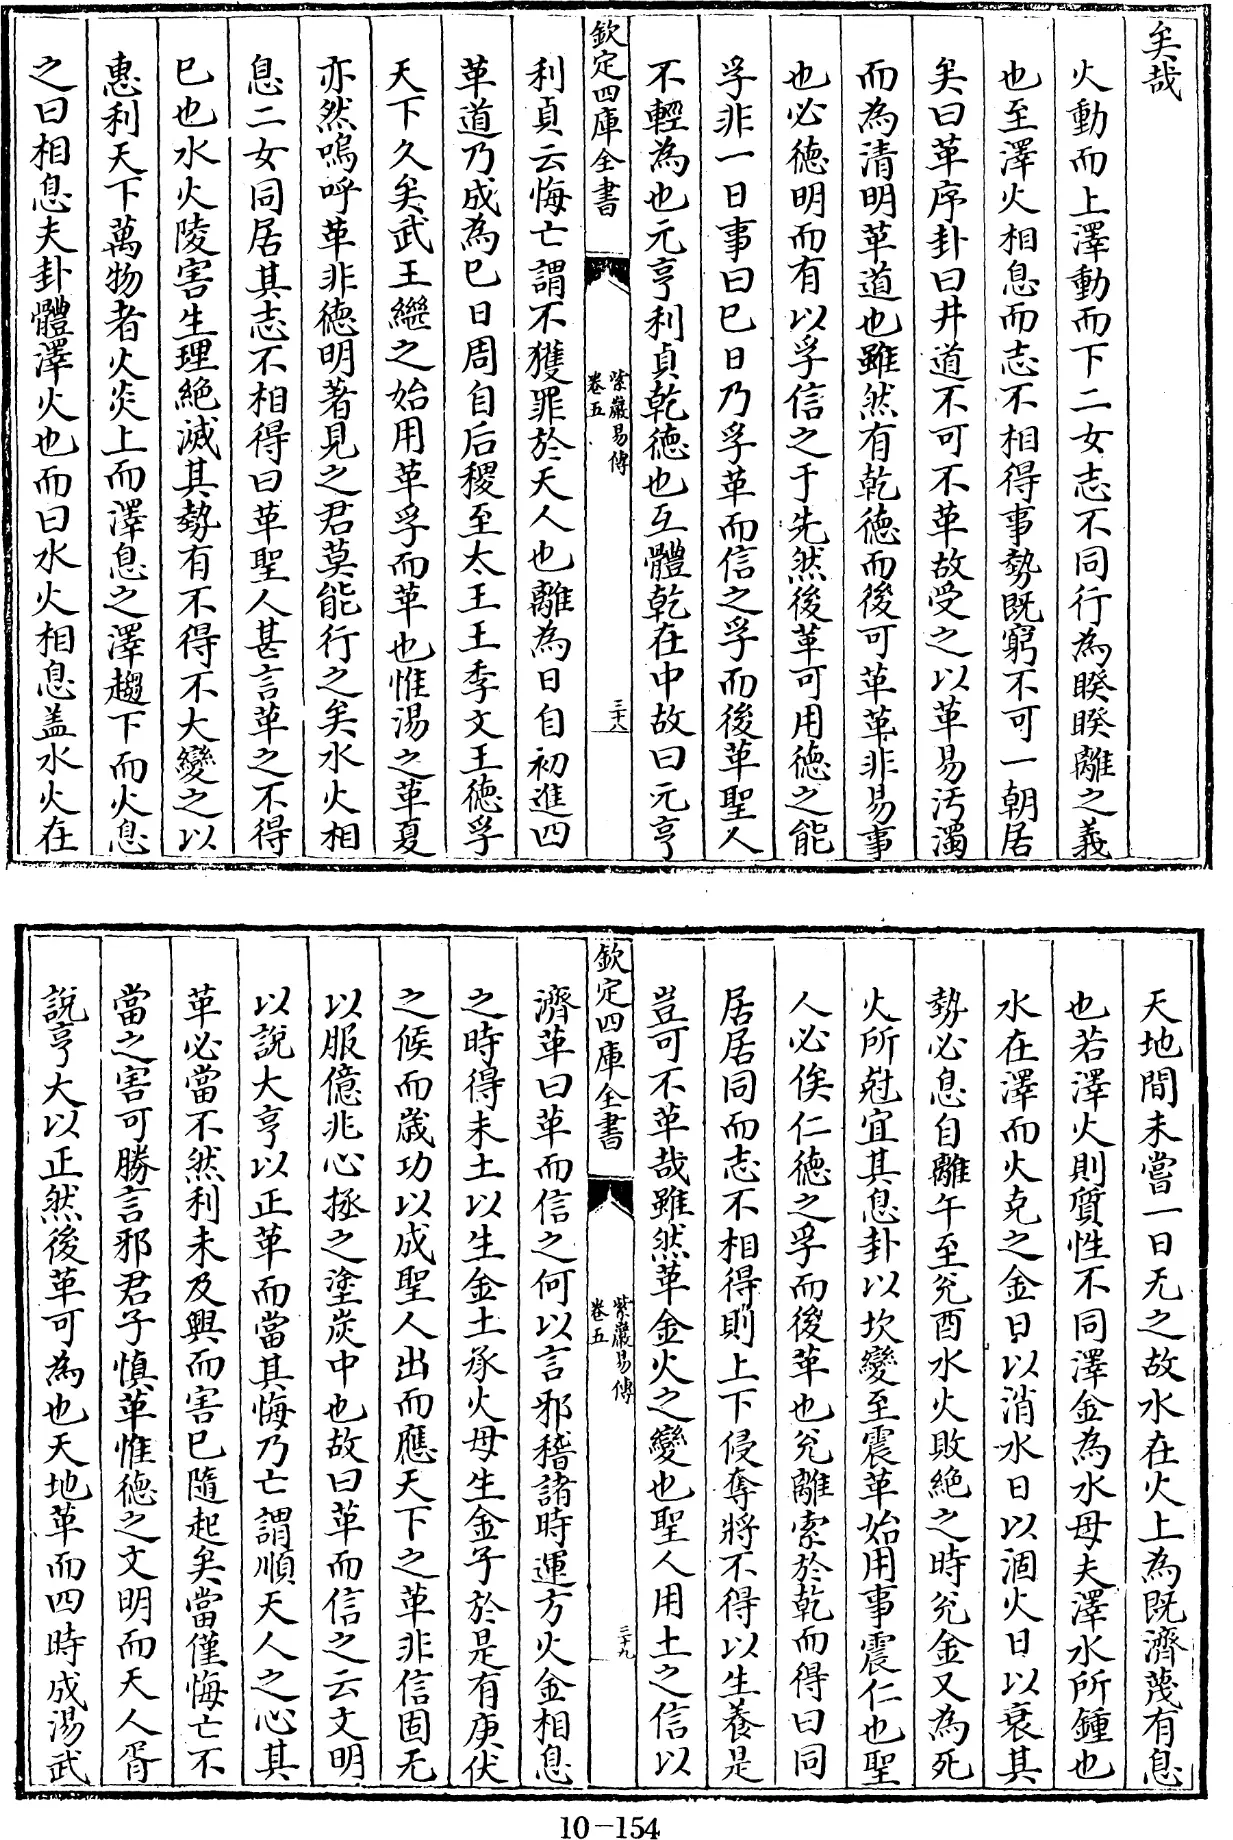 矣哉
火動而上澤動而下二女志不同行為睽睽離之義
也至澤火相息而志不相得事勢既窮不可一朝居
矣曰革序卦曰井道不可不革故受之以革易汚濁
而為清明革道也雖然有乾徳而後可革革非易事
也必徳明而有以孚信之于先然後革可用徳之能
孚非一日事曰巳日乃孚革而信之孚而後革聖人
不輕為也元亨利貞乾徳也互體乾在中故曰元亨
欽定四庫全書
紫巖易傳
卷五
三十八
利貞云悔亡謂不獲罪於天人也離為日自初進四
革道乃成為巳日周自后稷至太王王季文王徳孚
天下久矣武王繼之始用革孚而革也惟湯之革夏
亦然嗚呼革非徳明著見之君莫能行之矣水火相
息二女同居其志不相得曰革聖人甚言革之不得
巳也水火陵害生理絶滅其勢有不得不大變之以
惠利天下萬物者火炎上而澤息之澤趨下而火息
之曰相息夫卦體澤火也而曰水火相息盖水火在
天地間未嘗一日无之故水在火上為既濟蔑有息
也若澤火則質性不同澤金為水母夫澤水所鍾也
水在澤而火克之金日以消水日以涸火日以衰其
勢必息自離午至兊酉水火敗絶之時兊金又為死
火所尅宜其息卦以坎變至震革始用事震仁也聖
人必俟仁徳之孚而後革也兊離索於乾而得曰同
居居同而志不相得則上下侵奪將不得以生養是
豈可不革哉雖然革金火之變也聖人用土之信以
欽定四庫全書
紫巖易傳
卷五
三十九
濟革曰革而信之何以言邪稽諸時運方火金相息
之時得未土以生金土承火母生金子於是有庚伏
之候而歳功以成聖人出而應天下之革非信固无
以服億兆心拯之塗炭中也故曰革而信之云文明
以説大亨以正革而當其悔乃亡謂順天人之心其
革必當不然利未及興而害巳隨起矣當僅悔亡不
當之害可勝言邪君子慎革惟德之文明而天人胥
説亨大以正然後革可為也天地革而四時成湯武
10-154